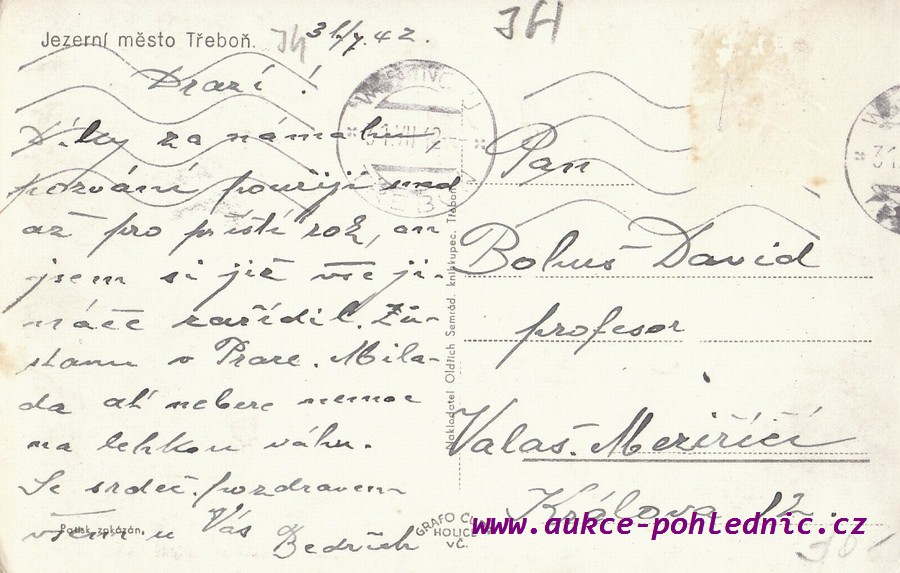 Jezerní město Třeboň.
31/7.42.
JH
JH
Drazí!
Díky za námahu,
pozvání použiji snad
až pro příští rok, an
jsem si již vše ji-
náče zařídil. Zů-
stanu v Praze. Mila-
da ať nebere nemoc
na lehkou váhu.
Se srdeč. pozdravem
všem u Vás
Bedřich
Patisk zakázán.
Nakladatel Oldřich Semrád, knihkupec, Třeboň
GRAFO
HOLICE
VČ.
Pan
Bohuš David
profesor
Valaš. Meziříčí
Králova 12.
www.aukce-pohlednic.cz